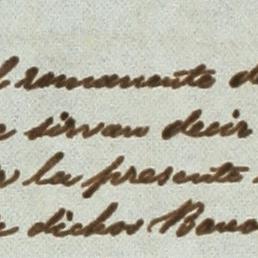 l remanente d
e sirvan decir
r la presente
e dichos Bano